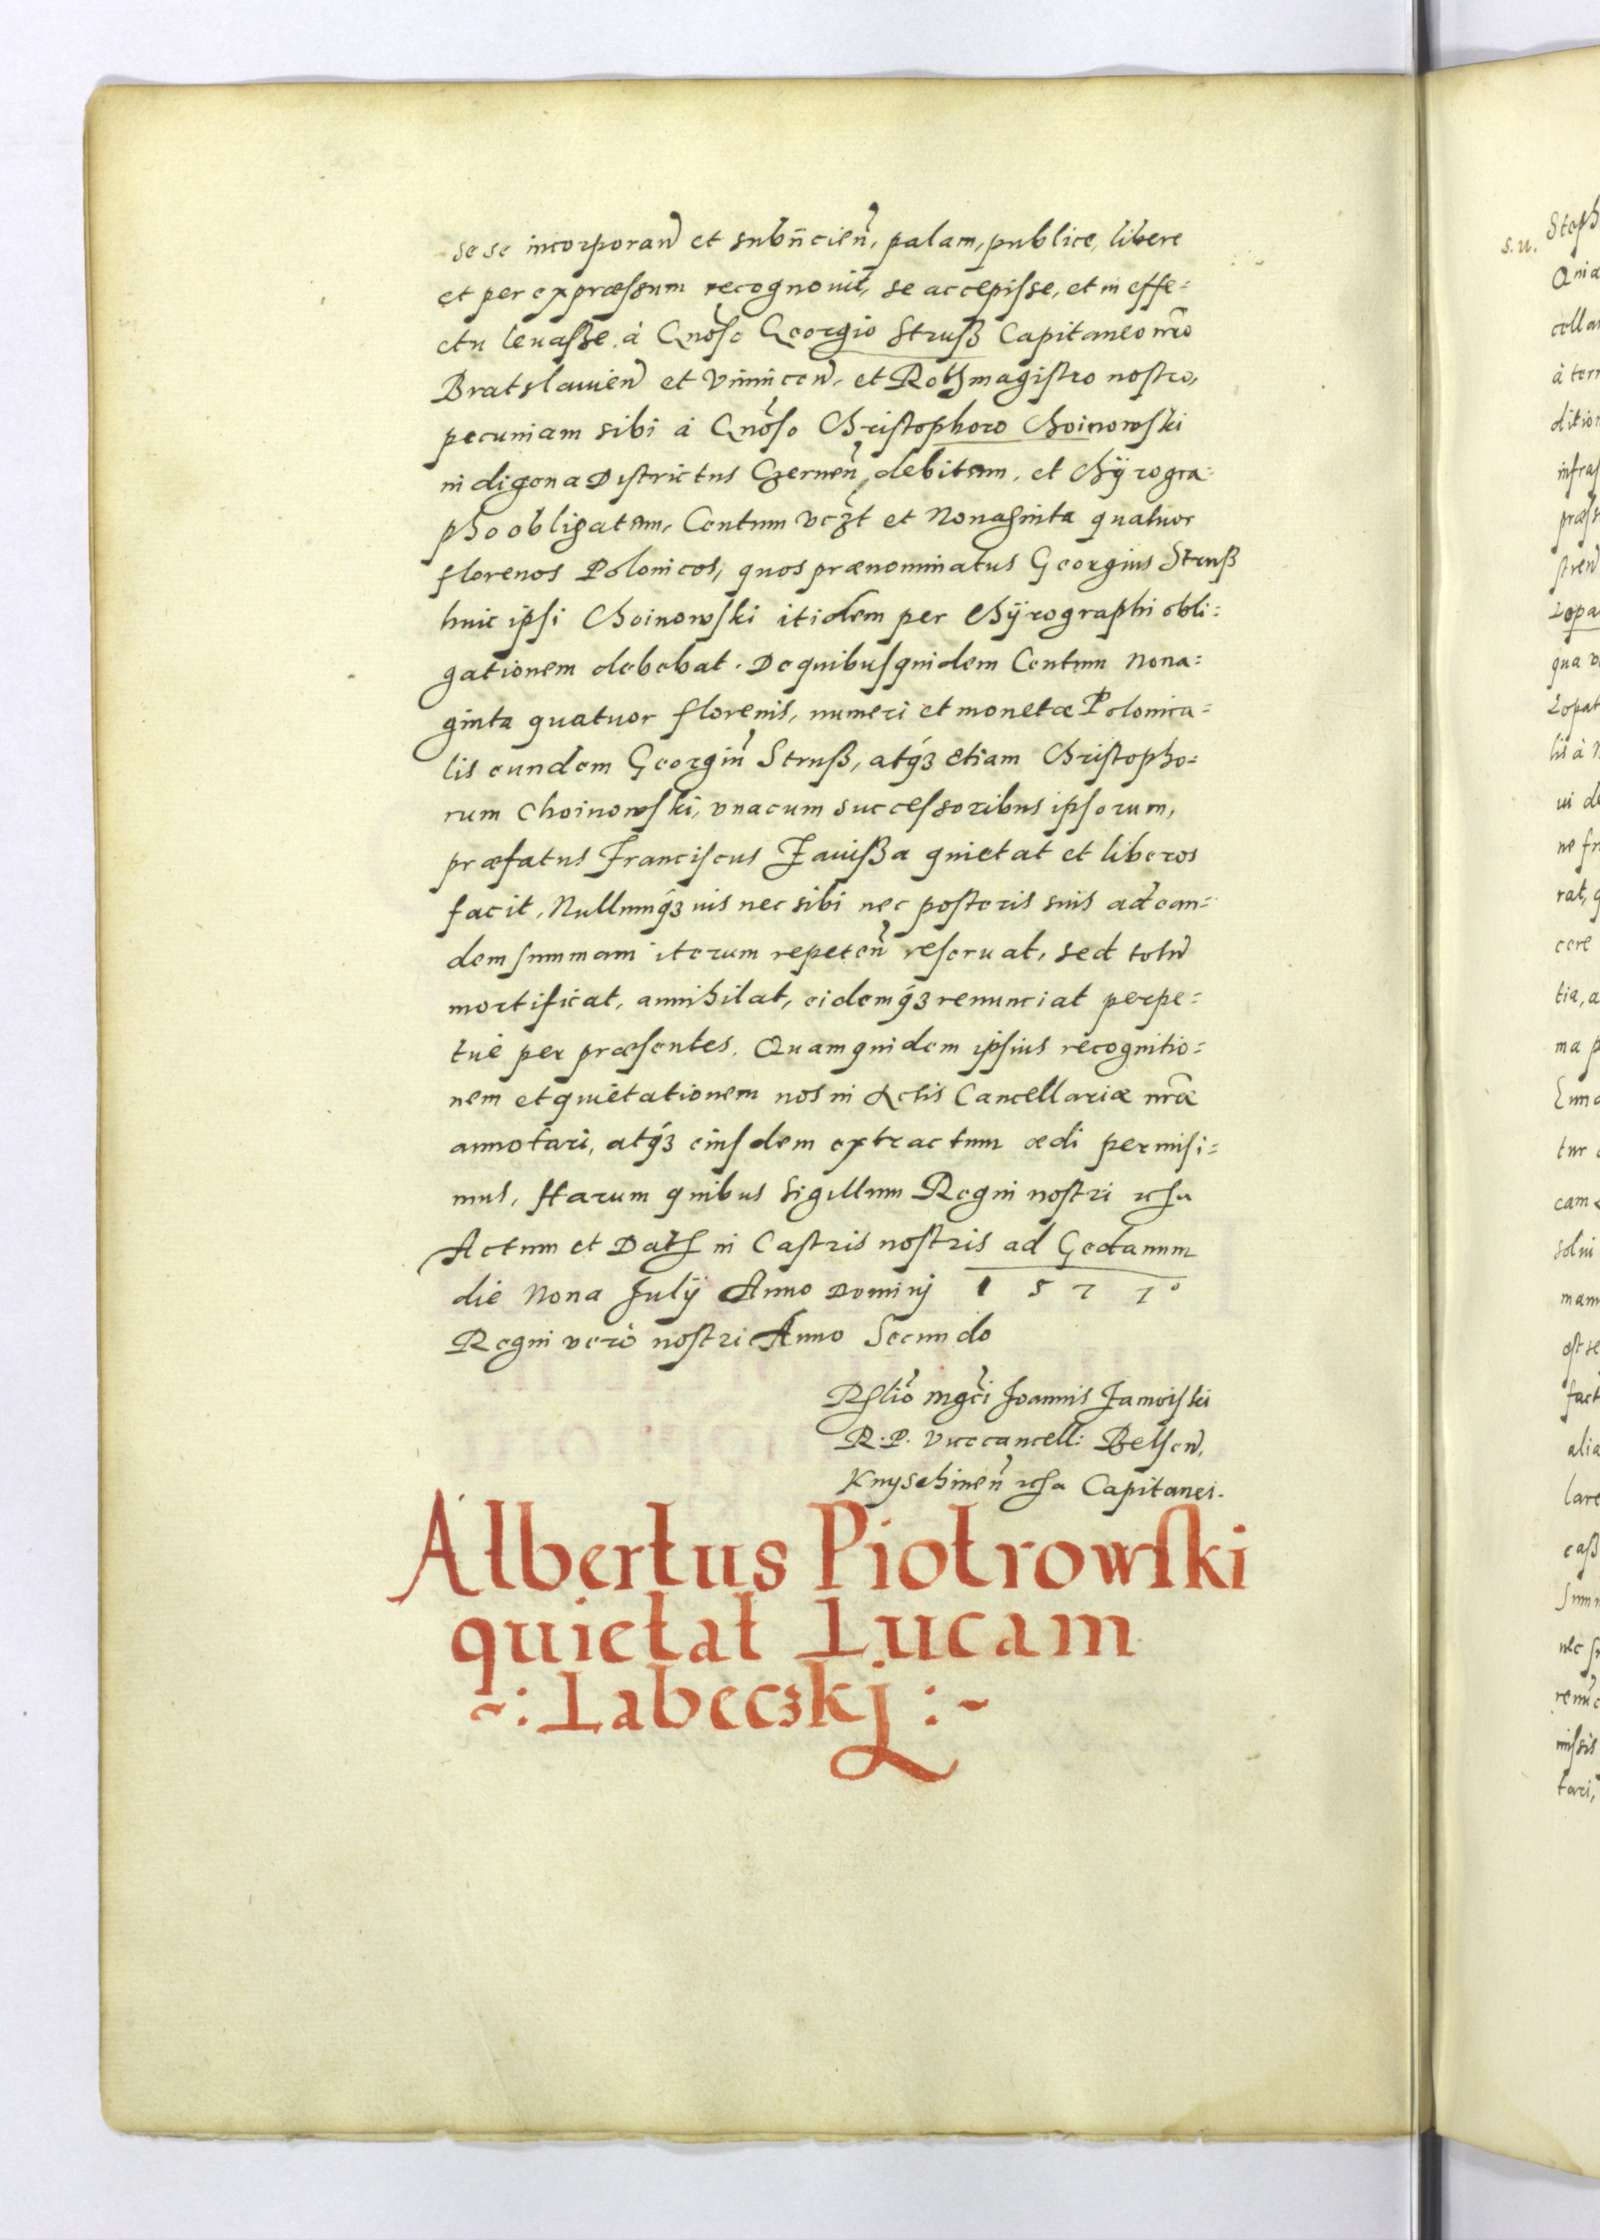 sese incorporan̄ et subÿcien̄, palam, publice, libere
et per expræssum recognovit, se accepisse, et in effe=
ctu levasse, à Gn̄oso Georgio Struß Capitaneo nr̄o
Bratslavien̄ et Vinnicen̄, et Rothmagistro nostro,
pecuniam sibi à Gn̄oso Christophoro Choinowski
indigena Districtus Czernen̄ debitam, et Chÿrogra=
pho obligatam, Centum vczt et Nonaginta quatuor
florenos Polonicos, quos prænominatus Georgius Struß
huic ipsi Choinowski itidem per Chÿrographi obli=
gationem debebat. De quibusquidem Centum Nona=
ginta quatuor florenis, numeri et monetæ Polonica=
lis eundem Georgiū Struß, atq́ꝫ etiam Christopho=
rum Choinowski, vnacum successoribus ipsorum,
præfatus Franciscus Zawißa quietat et liberos
facit, Nullumq́ꝫ ius nec sibi nec posteris suis ad ean=
dem summam iterum repeten̄ reservat, sed totū
mortificat, annihilat, eidemq́ꝫ renunciat perpe=
tuè per præsentes. Quamquidem ipsius recognitio=
nem et quietationem nos in Actis Cancellariæ nr̄æ
annotari, atq́ꝫ eiusdem extractum ædi permisi=
mus, Harum quibus Sigillum Regni nostri
Actum et Dath in Castris nostris ad Gedanum
die Nona Julÿ Anno Dominj 1 5 7 7°
Regni verò nostri Anno Secundo
Rs̄lio Mgc̄i Joannis Zamoiski
R. P. Vicecancell: Belsen̄,
Knyschinen̄ Capitanei.
Albertus Piotrowski
quietat Lucam
~: Labeczkj :~
s.u. Steph
Quia
cella
à terr
dition
infras
præs
stren̄
Lopa
qua
Lopat
lis à
ui de
ne fr
rat, q
cere
tia, a
ma p
tur
cam
solui
mam
est se
fact
alia
lare
Sum
nec
missis
tari,